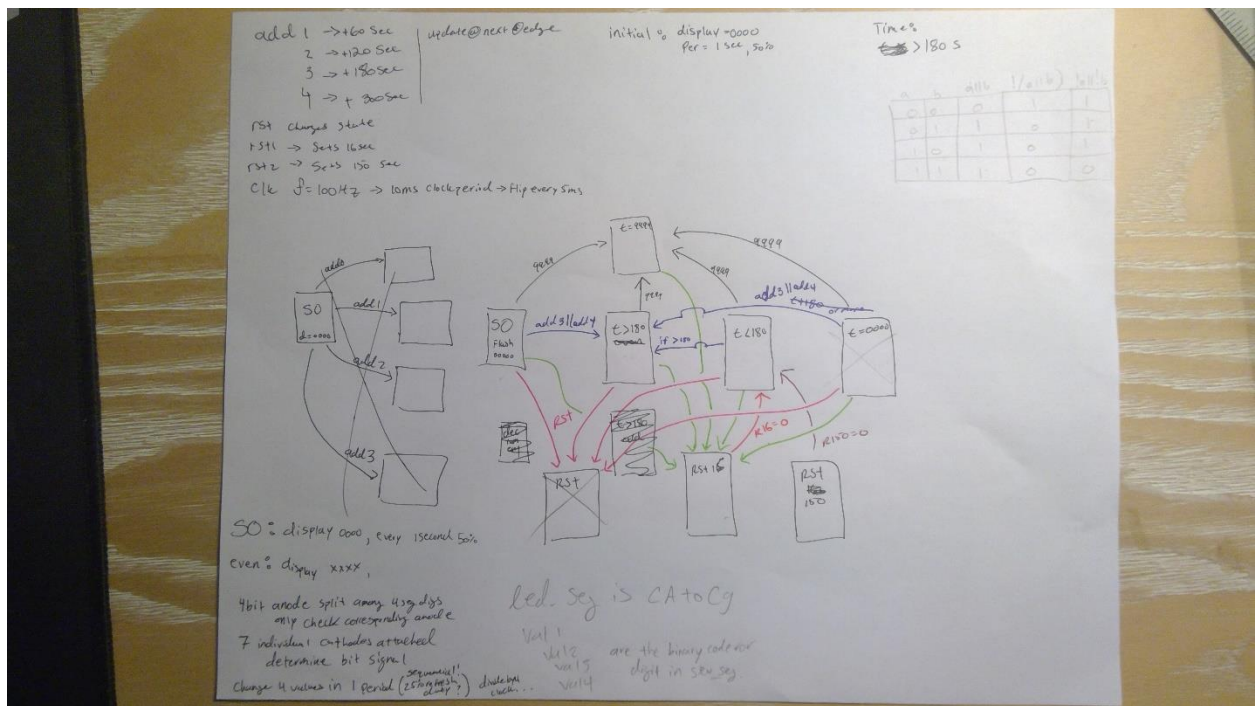 add 1 → +60 Sec
2 → +120 Sec
3 → +180 Sec
4 → + 300 Sec
update @ next @edge
initial : display =0000
Per = 1 sec, 50%
Time:
> 180 s
a b a||b !(a||b) !a||!b
0 0 0 1 1
0 1 1 0 1
1 0 1 0 1
1 1 1 0 0
rst changes state
rst1 → Sets 16sec
rst2 → Sets 150 sec
Clk f=100Hz → 10ms clock period → flip every 5ms
add0
add1
add2
add3
SO
d=0000
t=9999
9999
9999
9999
9999
SO
Flash
00000
add3||add4
t>180
if >180
t<180
add3||add4
t+180
or more
t=0000
Rst
R16=0
R150=0
t>180
add
Rst
Rst 16
RST
150
SO : display 0000, every 1second 50%
even : display xxxx,
4bit anode split among 4 seg digs
only check corresponding anode
7 individual cathodes attached
determine bit signal
sequencial!
Change 4 values in 1 period (25% refresh duty?) divide by 4
clock...
led_seg is CA to Cg
Val 1
val2 are the binary code for
val3 digit in sev_seg.
val4